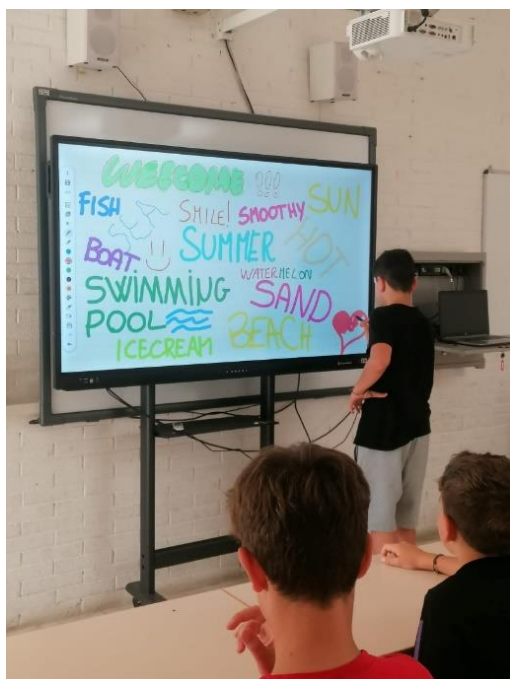 WELCOME !!!
FISH SMILE! SMOOTHY SUN
BOAT SUMMER HOT
WATERMELON
SWIMMING SAND
POOL BEACH
ICECREAM